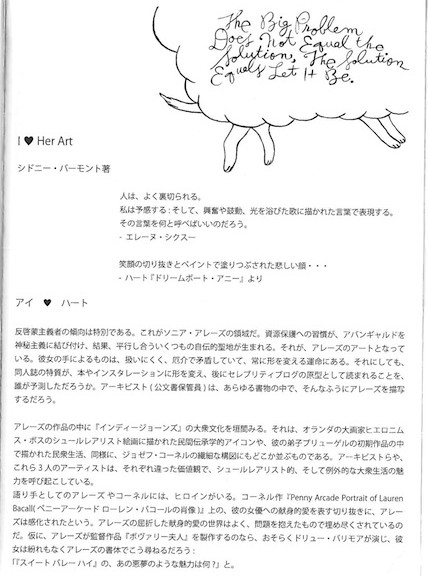 The Big Problem
Does Not Equal the
Solution, The Solution
Equals Let It Be.
I ♥ Her Art
シドニー・バーモント著
人は、よく裏切られる。
私は予感する : そして、興奮や鼓動、光を浴びた歌に描かれた言葉で表現する。
その言葉を何と呼べばいいのだろう。
- エレーヌ・シクスー
笑顔の切り抜きとペイントで塗りつぶされた悲しい顔・・・
- ハート『ドリームボート・アニー』より
アイ ♥ ハート
反啓蒙主義者の傾向は特別である。これがソニア・アレーズの領域だ。資源保護への習慣が、アバンギャルドを
神秘主義に結び付け、結果、平行し合ういくつもの自伝的聖地が生まれる。それが、アレーズのアートとなって
いる。彼女の手によるものは、扱いにくく、厄介で矛盾していて、常に形を変える運命にある。それにしても、
同人誌の特質が、本やインスタレーションに形を変え、後にセレブリティブログの原型として読まれることを、
誰が予測しただろうか。アーキビスト ( 公文書保管員 ) は、あらゆる書物の中で、そんなふうにアレーズを描写
するだろう。
アレーズの作品の中に『インディージョーンズ』の大衆文化を垣間みる。それは、オランダの大画家ヒエロニム
ス・ボスのシュールレアリスト絵画に描かれた民間伝承学的アイコンや、彼の弟子ブリューゲルの初期作品の中
で描かれた民衆生活、同様に、ジョゼフ・コーネルの繊細な構図にもどこか並ぶものである。アーキビストらや、
これら 3 人のアーティストは、それぞれ違った価値観で、シュールレアリスト的、そして例外的な大衆生活の魅
力を呼び起こしている。
語り手としてのアレーズ やコーネルには、ヒロインがいる。コーネル作『Penny Arcade Portrait of Lauren
Bacall( ペニーアーケード ローレン・バコールの肖像 )』上の、彼の女優への献身的愛を表す切り抜きに、アレー
ズは感化されたという。アレーズの屈折した献身的愛の世界はよく、問題を抱えたもので埋め尽くされているの
だ。仮に、アレーズが監督作品『ボヴァリー夫人』を製作するのなら、おそらくドリュー・バリモアが演じ、彼
女は紛れもなくアレーズの書体でこう尋ねるだろう :
「『スイート バレー ハイ』の、あの悪夢のような魅力は何 ?」と。